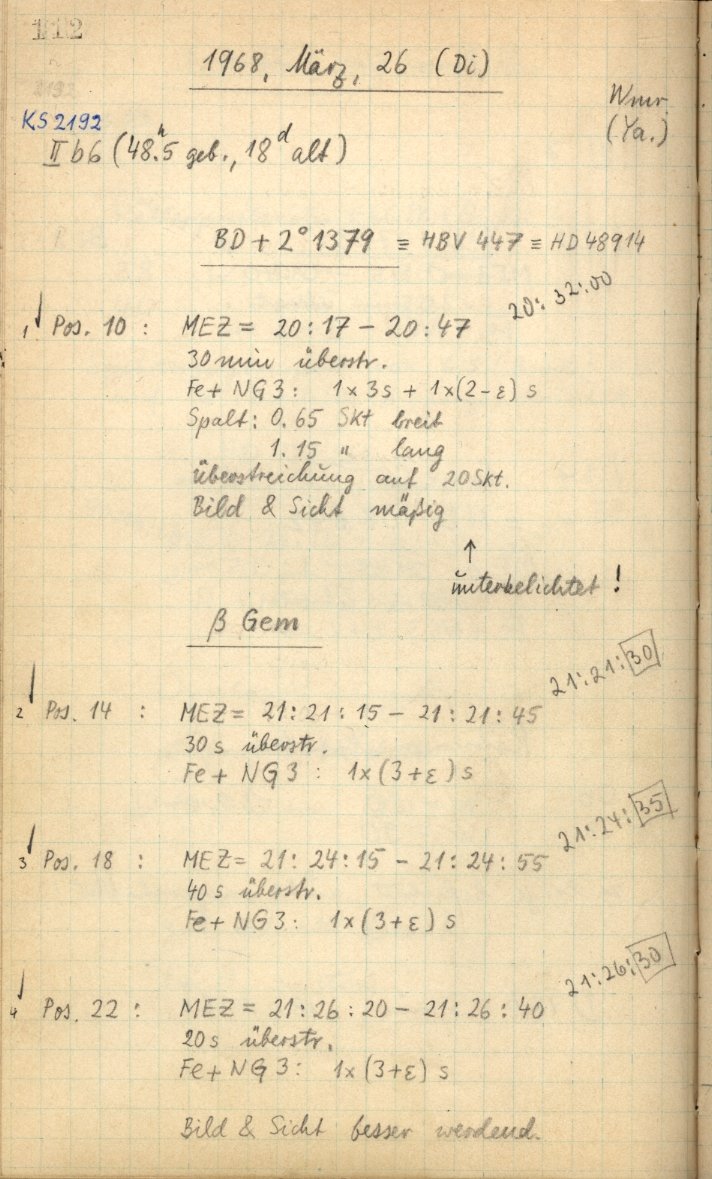 112
1968, März, 26 (Di)
2192
Wmr.
(Ya.)
KS 2192
II b6 (48.5ʰ geb., 18ᵈ alt)
BD + 2° 1379 ≡ HBV 447 ≡ HD 48914
20:32:00
1 Pos. 10 : MEZ = 20:17 – 20:47
30 min überstr.
Fe + NG3 : 1 x 3s + 1 x (2-ε) s
Spalt : 0.65 Skt breit
1.15 " lang
Überstreichung auf 20 Skt.
Bild & Sicht mäßig
↑
unterbelichtet !
β Gem
21:21:30
2 Pos. 14 : MEZ = 21:21:15 – 21:21:45
30 s überstr.
Fe + NG3 : 1 x (3+ε) s
21:24:35
3 Pos. 18 : MEZ = 21:24:15 – 21:24:55
40 s überstr.
Fe + NG3 : 1 x (3+ε) s
21:26:30
4 Pos. 22 : MEZ = 21:26:20 – 21:26:40
20 s überstr.
Fe + NG3 : 1 x (3+ε) s
Bild & Sicht besser werdend.